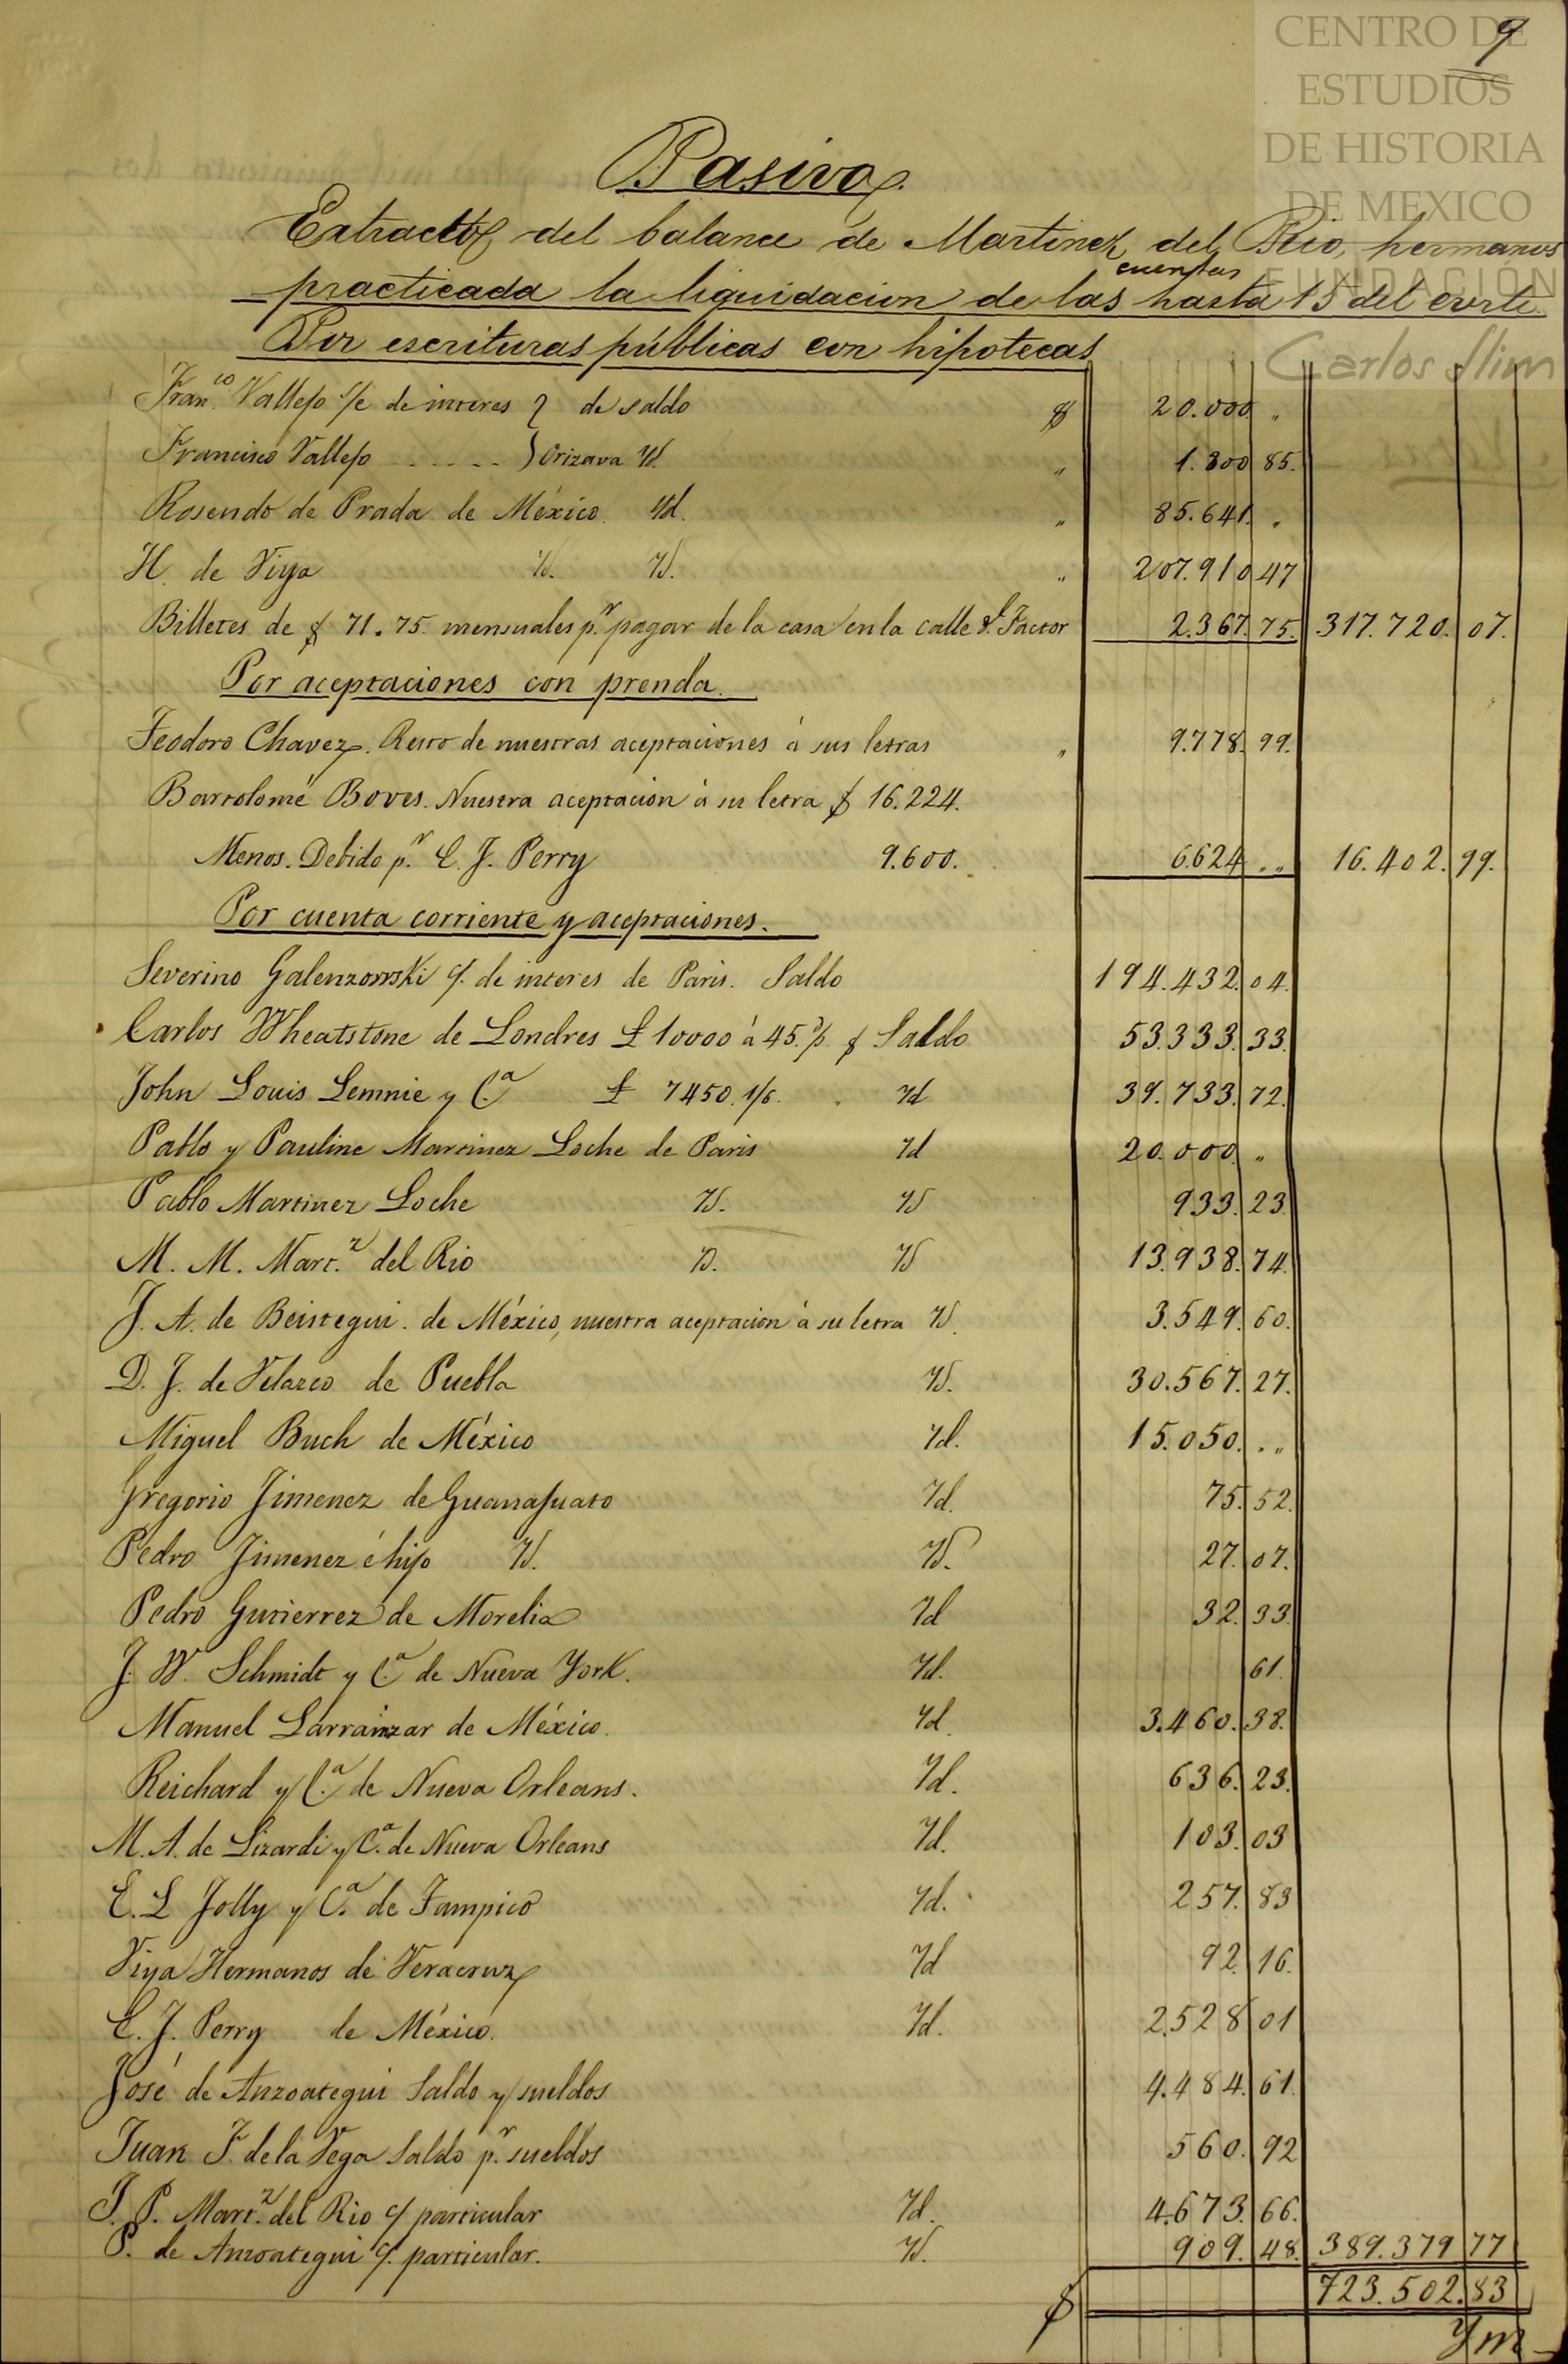 CENTRO DE
ESTUDIOS
DE HISTORIA
DE MEXICO
FUNDACIÓN
Carlos Slim
9
Pasivo.
Extracto del balance de Martinez del Rio, hermanos
practicada la liquidacion de las cuentas hasta 15 del corrte.
Por escrituras públicas con hipotecas
Franco. Vallejo c/c de interes } de saldo $ 20.000 "
Francisco Vallejo ..... } Orizava Yd. " 1.800 85.
Rosendo de Prada de México. Yd. " 85.641. "
H. de Viya Yd. Yd. " 207.910 47
Billetes de $ 71.75. mensuales pr. pagar de la casa en la calle dl. Factor 2.367.75. 317.720.07.
Por aceptaciones con prenda.
Teodoro Chavez. Resto de nuestras aceptaciones á sus letras " 9.778.99.
Bartolomé Boves. Nuestra aceptacion á su letra $ 16.224.
Menos. Debido pr. E. J. Perry 9.600. 6.624 .. 16.402.99.
Por cuenta corriente y aceptaciones.
Severino Galenzowski c/. de interes de Paris. Saldo 194.432.04.
Carlos Wheatstone de Londres £ 10000 á 45.d/. $ Saldo 53.333.33.
John Louis Lemnie y Ca. £ 7450.1/6. Yd 39.733.72.
Pablo y Pauline Martinez Loche de Paris Yd 20.000. "
Pablo Martinez Loche Yd. Yd 933.23.
M. M. Martz. del Rio Yd. Yd 13.938.74.
J. A. de Beistegui. de México, nuestra aceptacion á su letra Yd. 3.549.60.
D. J. de Velazco de Puebla Yd. 30.567.27.
Miguel Buch de México Yd. 15.050. ..
Gregorio Jimenez de Guanajuato Yd. 75.52.
Pedro Jimenez é hijo Yd. Yd. 27.07.
Pedro Gutierrez de Morelia Yd 32.33.
J. W. Schmidt y Ca. de Nueva York. Yd. 61.
Manuel Larrainzar de México. Yd. 3.460.38.
Reichard y Ca. de Nueva Orleans. Yd. 636.23.
M. A. de Lizardi y Ca. de Nueva Orleans Yd. 103.03
E. L Jolly y Ca. de Tampico Yd. 257.83
Viya Hermanos de Veracruz Yd 92.16.
E. J. Perry de México. Yd. 2.528 01
José de Anzoategui Saldo y sueldos 4.484.61.
Juan F. de la Vega Saldo pr. sueldos 560.92
J. P. Martz. del Rio c/ particular Yd. 4.673.66.
P. de Anzoategui c/. particular. Yd. 909.48. 389.379 77
$ 723.502.83